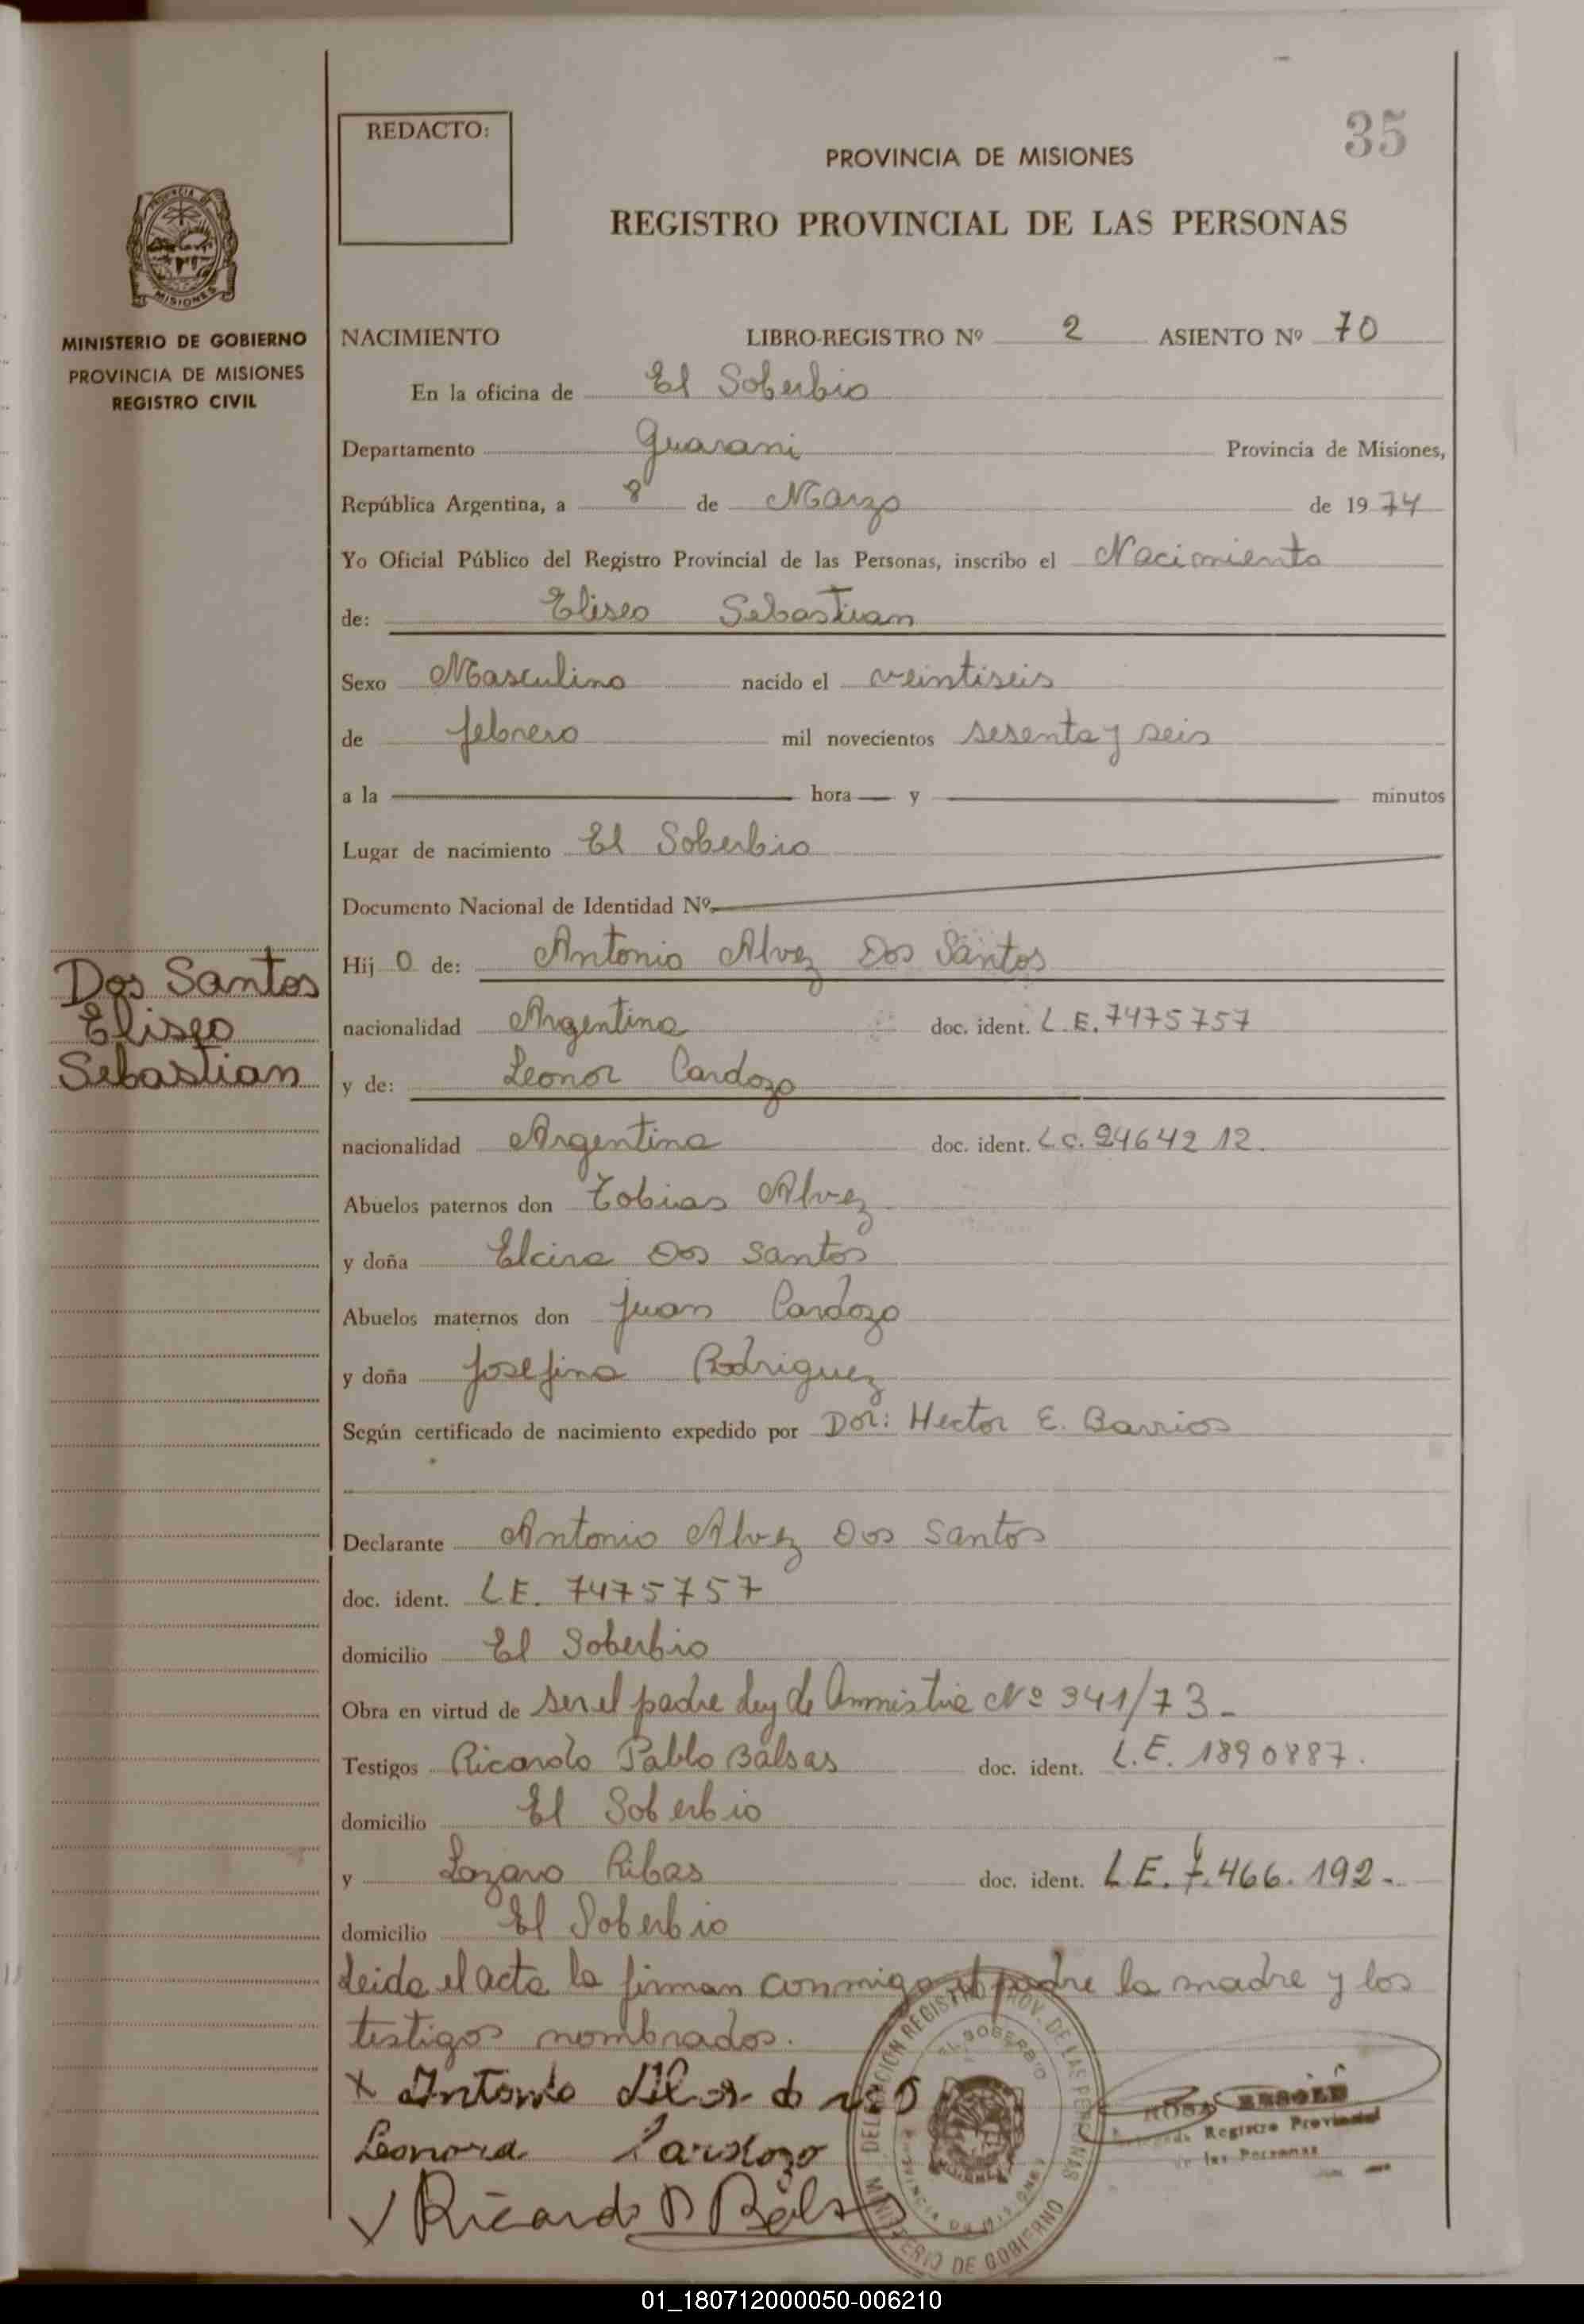 35
REDACTO:
PROVINCIA DE MISIONES
REGISTRO PROVINCIAL DE LAS PERSONAS
MISIONES
MINISTERIO DE GOBIERNO
PROVINCIA DE MISIONES
REGISTRO CIVIL
NACIMIENTO LIBRO-REGISTRO Nº 2 ASIENTO Nº 70
En la oficina de El Soberbio
Departamento Guarani Provincia de Misiones,
República Argentina, a 8 de Marzo de 1974
Yo Oficial Público del Registro Provincial de las Personas, inscribo el Nacimiento
de: Eliseo Sebastian
Sexo Masculino nacido el veintiseis
de febrero mil novecientos sesenta y seis
a la hora y minutos
Lugar de nacimiento El Soberbio
Documento Nacional de Identidad Nº
Dos Santos
Eliseo
Sebastian
Hij o de: Antonio Alvez Dos Santos
nacionalidad Argentina doc. ident. L.E. 7475757
y de: Leonor Cardozo
nacionalidad Argentina doc. ident. L.C. 2464212.
Abuelos paternos don Tobias Alvez
y doña Elcira Dos Santos
Abuelos maternos don Juan Cardozo
y doña Josefina Rodriguez
Según certificado de nacimiento expedido por Dor: Hector E. Barrios
Declarante Antonio Alvez Dos Santos
doc. ident. L.E. 7475757
domicilio El Soberbio
Obra en virtud de ser el padre Ley de Amnistia Nº 341/73-
Testigos Ricardo Pablo Balsas doc. ident. L.E. 1890887.
domicilio El Soberbio
y Lozaro Ribas doc. ident. L.E. 7.466.192-
domicilio El Soberbio
Leida el acta la firman conmigo el padre la madre y los
testigos nombrados.
x Antonio
Leonora Cardozo
Ricardo P
DELEGACION REGISTRO PROV. DE LAS PERSONAS
EL SOBERBIO
PROVINCIA DE MISIONES
MINISTERIO DE GOBIERNO
ROSA
Registro Provincial
de las Personas
01_180712000050-006210